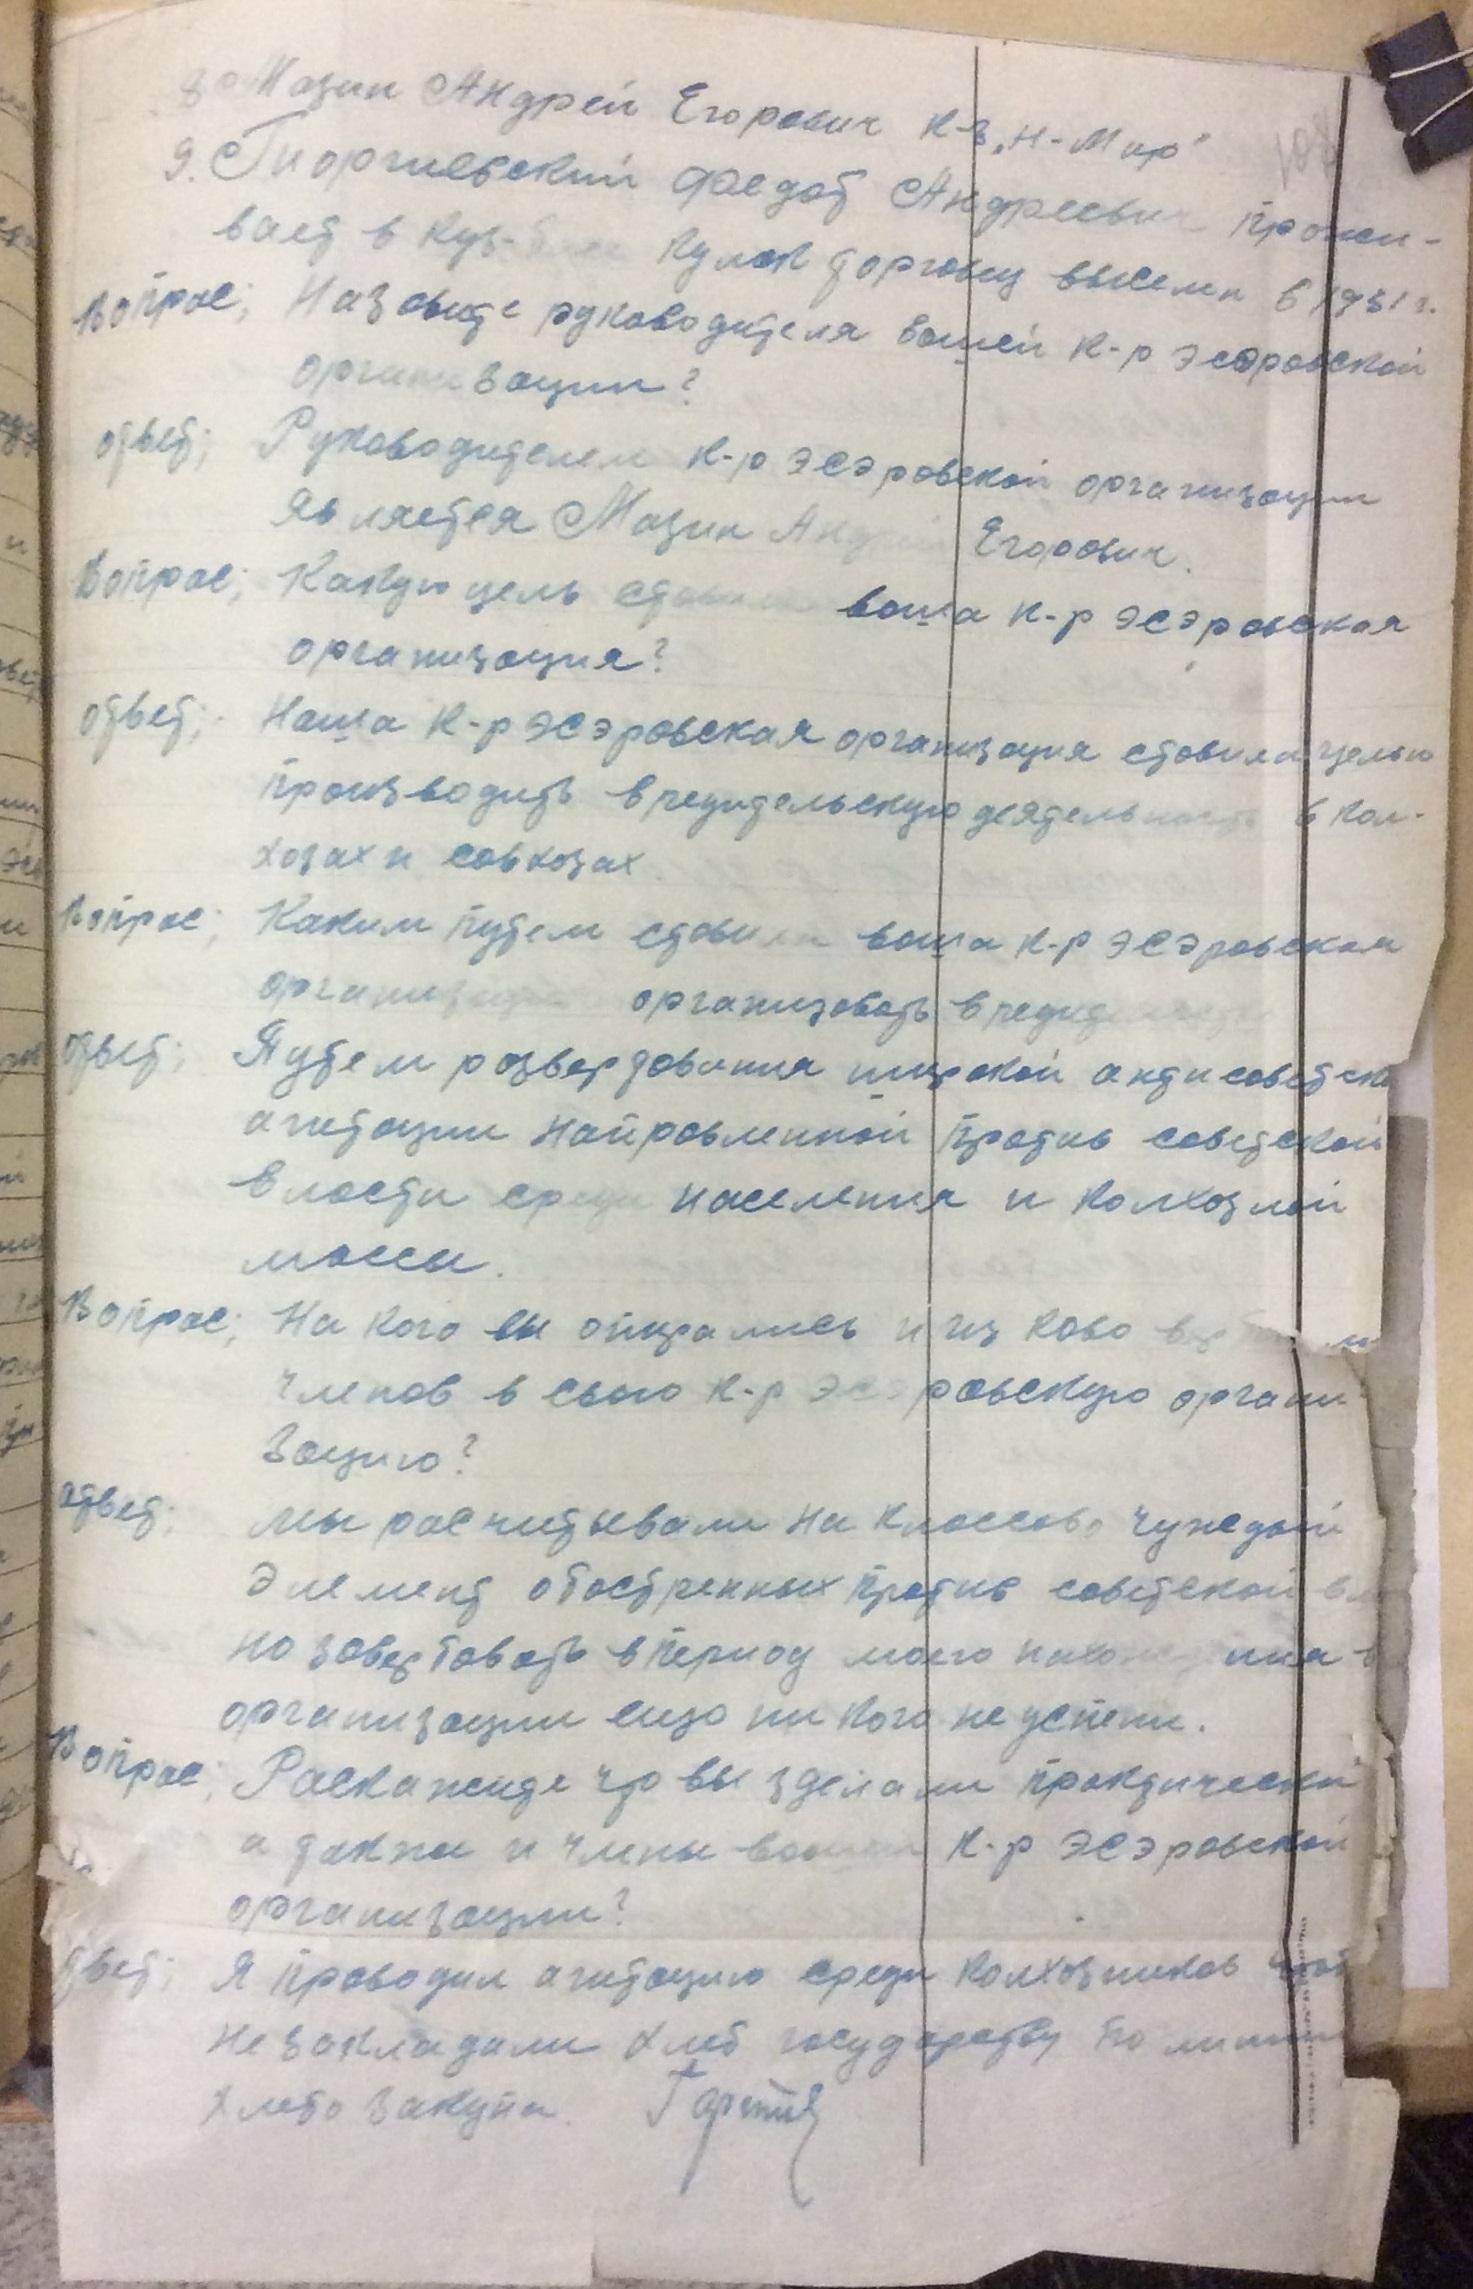 8 Мазин Андрей Егорович к-з „Н-Мир"
9. Гиоргиевский Федот Андреевич прожи-
вает в Куз- кулак торговец выслан в 1931 г.
Вопрос; Назовите руководителя вашей к-р эсэровской
организации?
ответ; Руководителем к-р эсэровской организации
является Мазин Андрей Егорович.
Вопрос; Какую цель ставила ваша к-р эсэровская
организация?
ответ; Наша к-р эсэровская организация ставила целью
производить вредительскую деятельность в кол-
хозах и совхозах.
Вопрос; Каким путем ставила ваша к-р эсэровская
организация организовать
ответ; Путем развертования широкой антисоветско
агитации направленной против советской
власти среди населения и колхозной
массы.
Вопрос; На кого вы опирались и из ково
членов в свою к-р эсэровскую органи-
зацию?
ответ; мы расчитывали на классово чуждый
элемент обостренных против советской
но завербовать в период моего нахождения в
организации еще никого не успели.
Вопрос; Раскажите что вы зделали практически
а также и члены вашей к-р эсэровской
организации?
ответ; Я проводил агитацию среди колхозников
не закладали хлеб государству по линии
хлебозакупа.